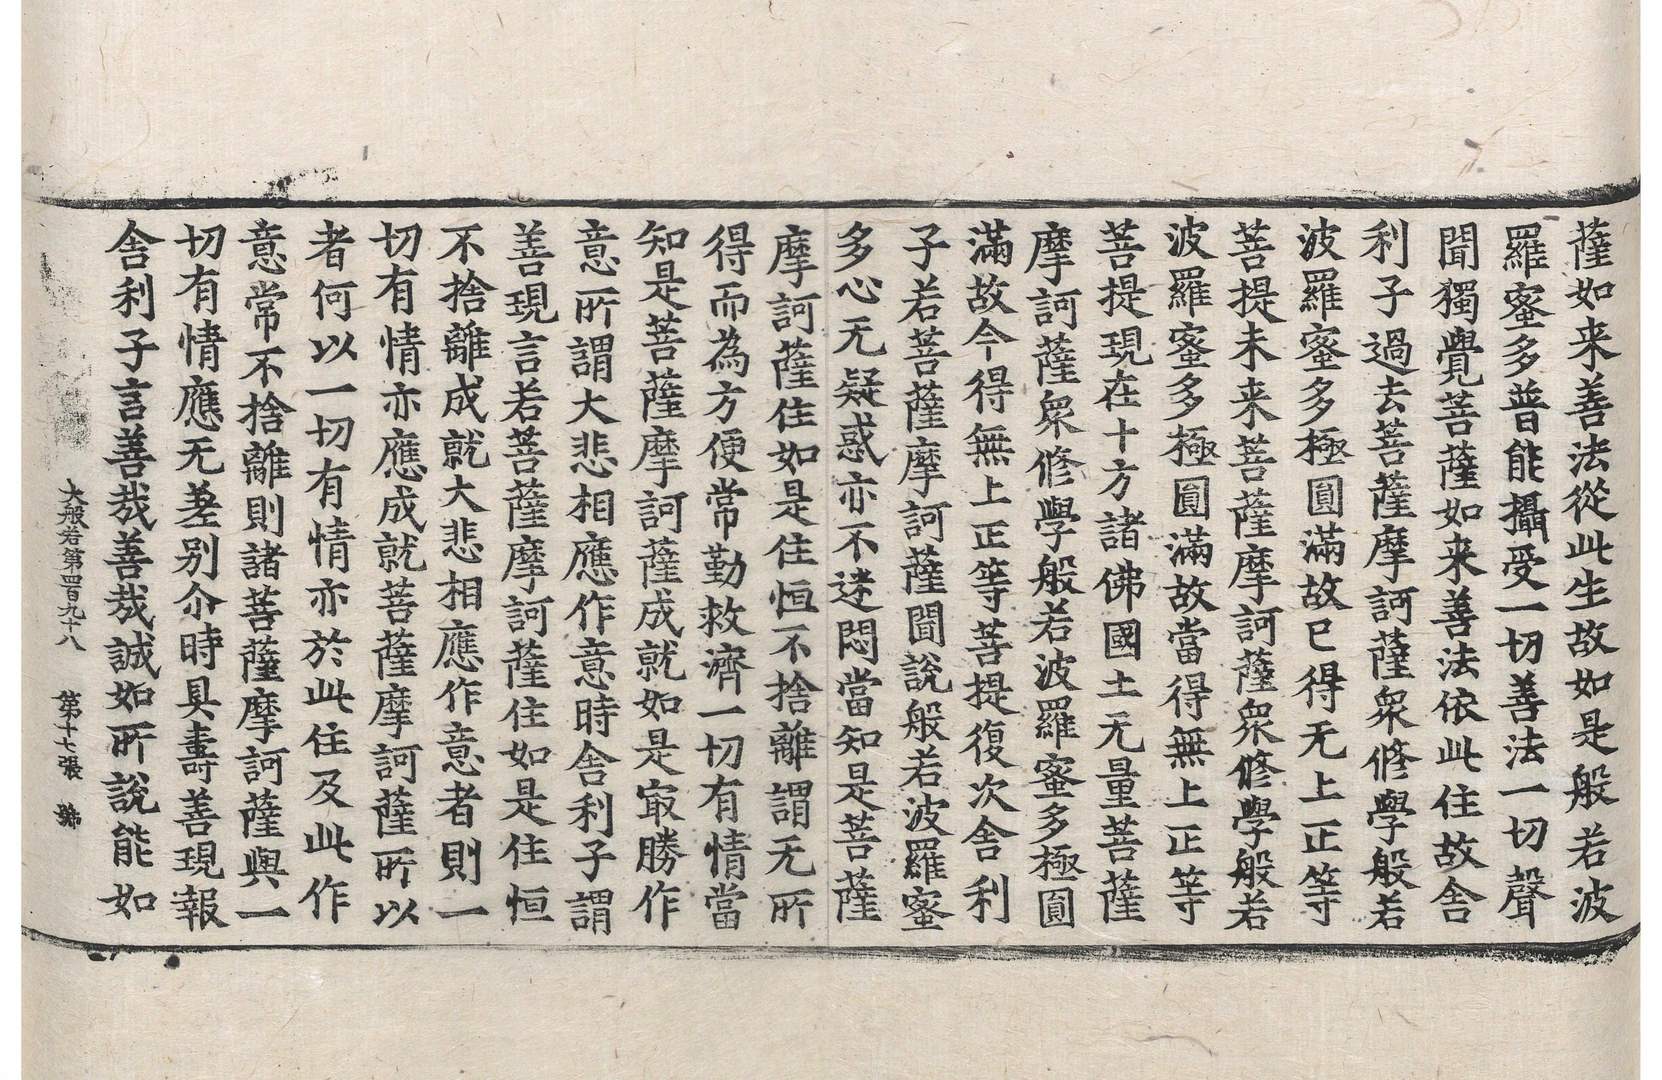 薩如来善法從此生故如是般若波
羅蜜多普能攝受一切善法一切聲
聞獨覺菩薩如来善法依此住故舍
利子過去菩薩摩訶薩衆修學般若
波羅蜜多極圓滿故已得无上正等
菩提未来菩薩摩訶薩衆修學般若
波羅蜜多極圓滿故當得無上正等
菩提現在十方諸佛國土无量菩薩
摩訶薩衆修學般若波羅蜜多極圓
滿故今得無上正等菩提復次舍利
子若菩薩摩訶薩聞說般若波羅蜜
多心无疑惑亦不迷悶當知是菩薩
摩訶薩住如是住恒不捨離謂无所
得而為方便常勤救濟一切有情當
知是菩薩摩訶薩成就如是冣勝作
意所謂大悲相應作意時舍利子謂
善現言若菩薩摩訶薩住如是住恒
不捨離成就大悲相應作意者則一
切有情亦應成就菩薩摩訶薩所以
者何以一切有情亦於此住及此作
意常不捨離則諸菩薩摩訶薩與一
切有情應无差别尒時具壽善現報
舍利子言善哉善哉誠如所說能如
大般若第四百九十八 第十七張